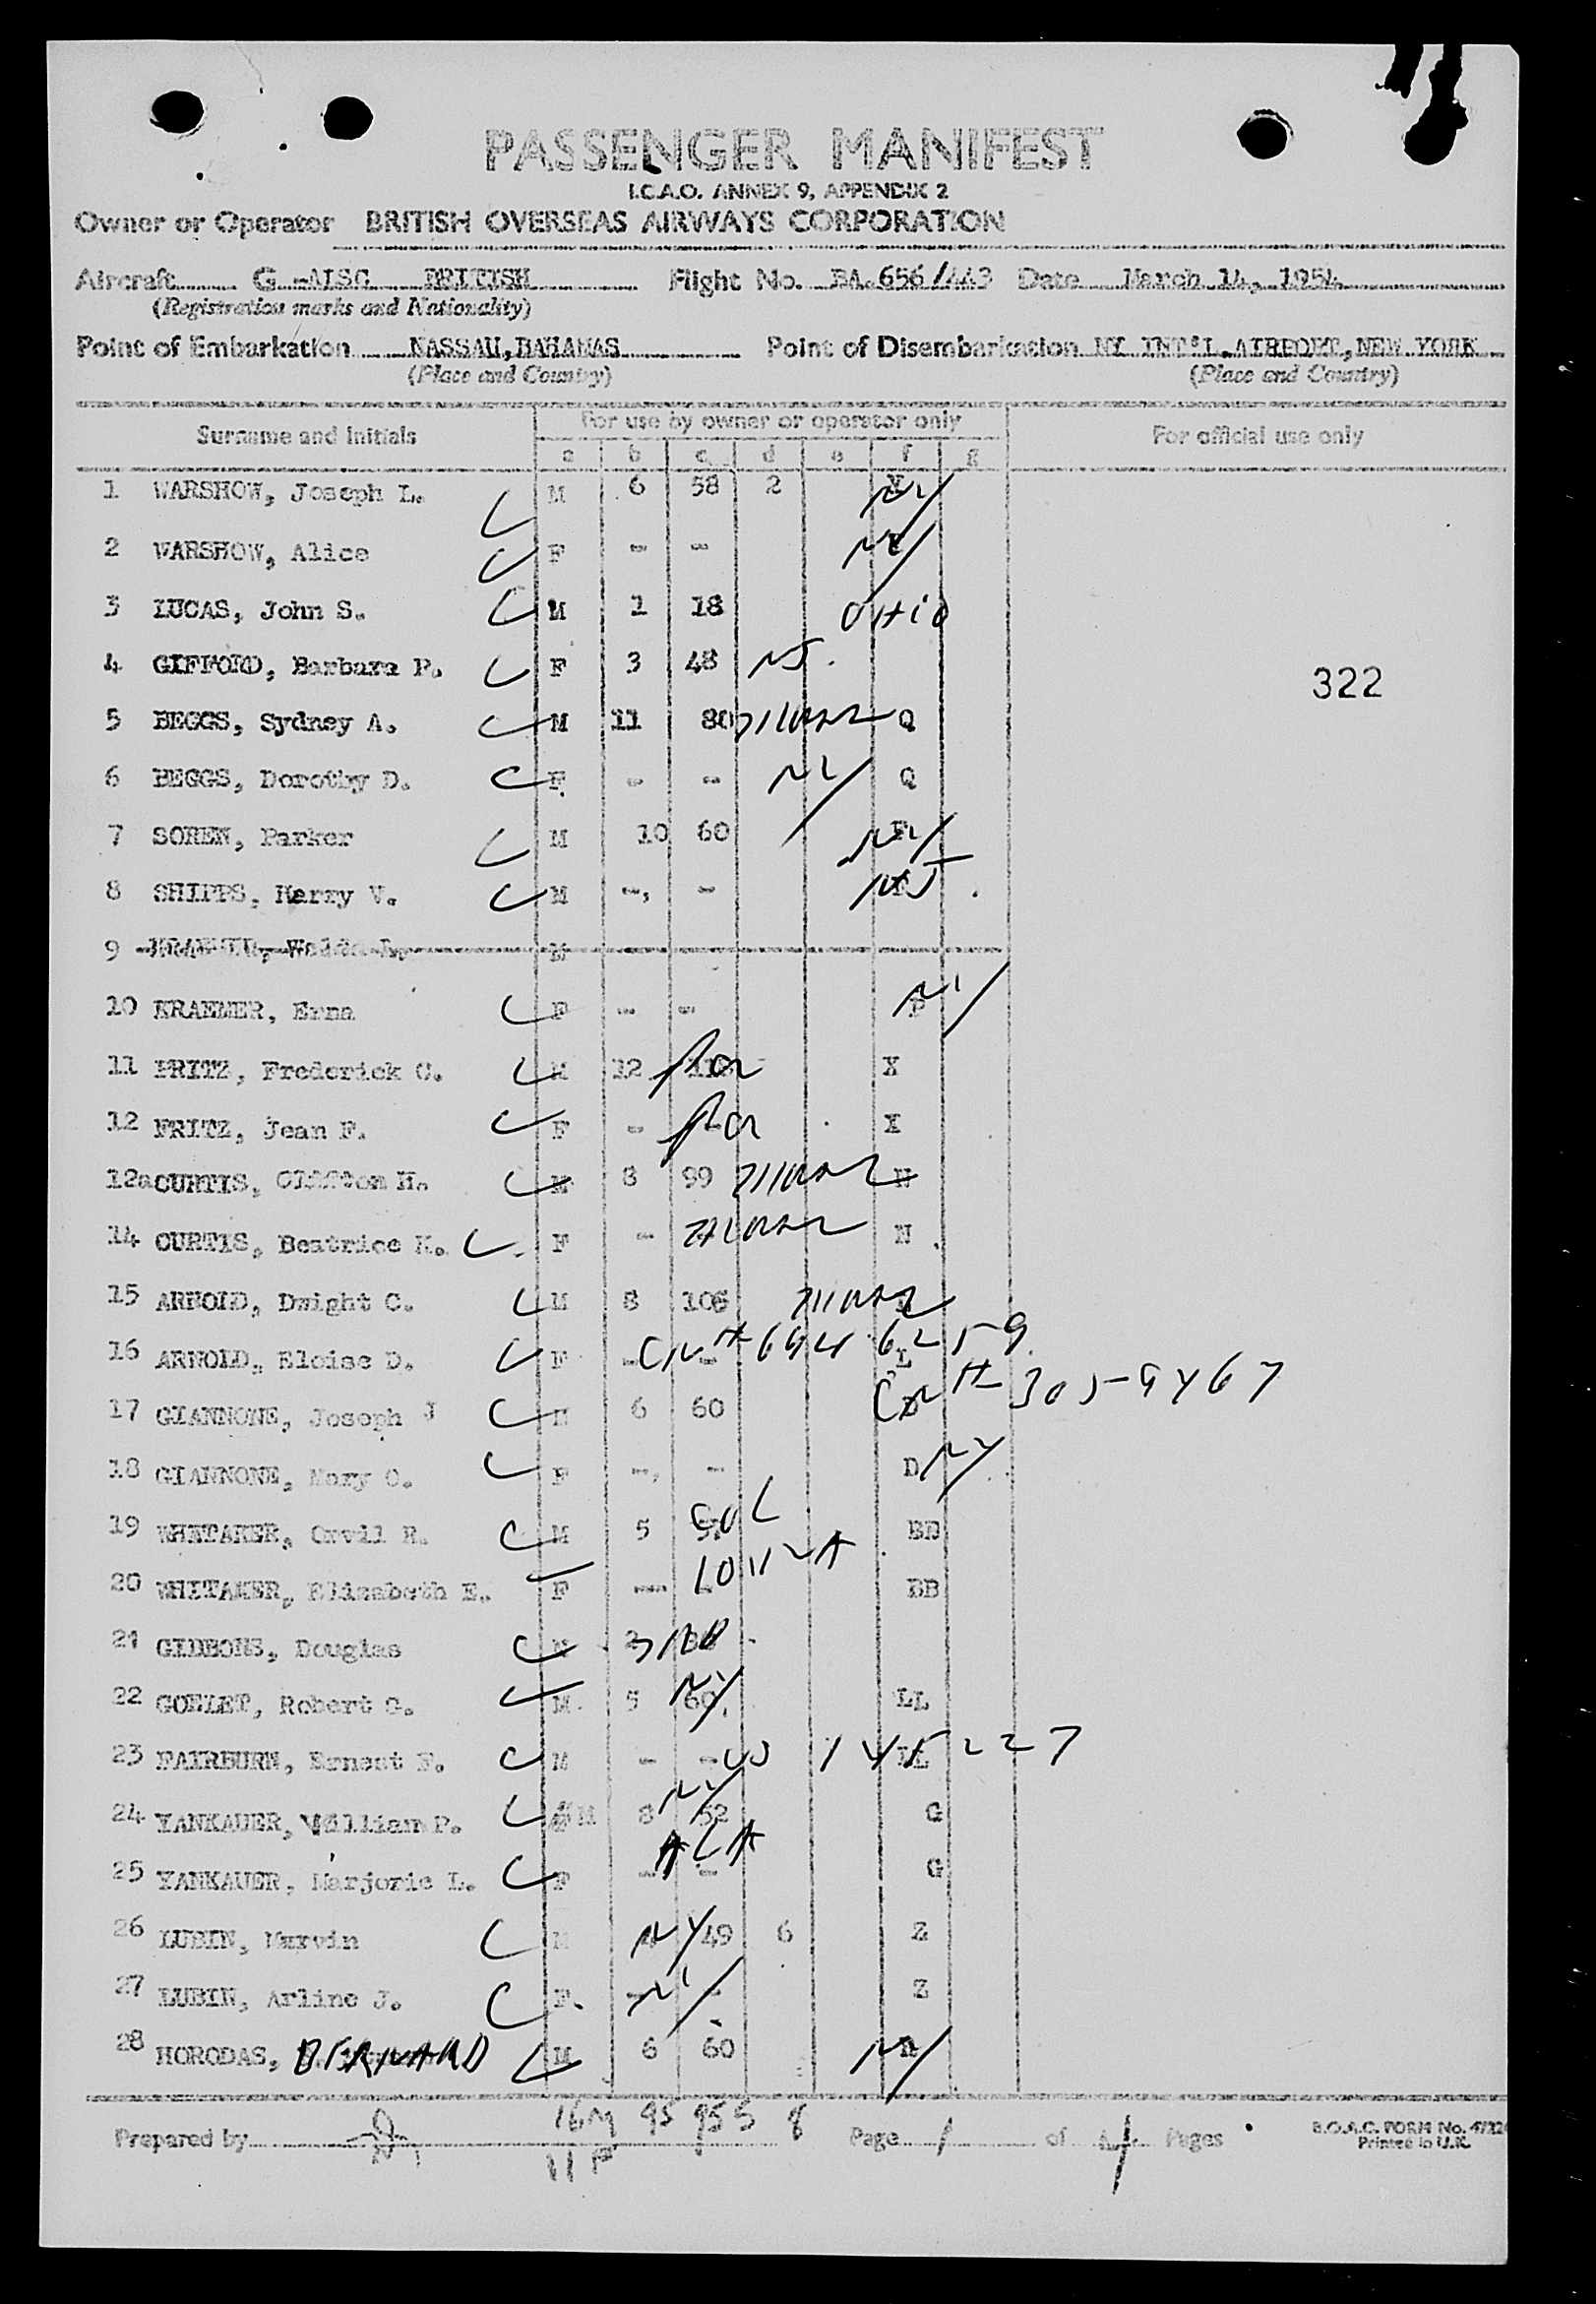 PASSENGER MANIFEST
I.C.A.O. ANNEX 9, APPENDIX 2
Owner or Operator BRITISH OVERSEAS AIRWAYS CORPORATION
Aircraft G-ALSC BRITISH Flight No. BA.656/443 Date March 14, 1954
(Registration marks and Nationality)
Point of Embarkation NASSAU,BAHAMAS Point of Disembarkation NY INT'L.AIRPORT,NEW YORK
(Place and Country) (Place and Country)
Surname and initials For use by owner or operator only For official use only
a b c d e f g
1 WARSHOW, Joseph L. C M 6 58 2 NY
2 WARSHOW, Alice C F - - NY
3 LUCAS, John S. C M 1 18 OHIO
4 GIFFORD, Barbara P. C F 3 48 NJ.
322
5 BEGGS, Sydney A. C M 11 80 Q
6 BEGGS, Dorothy D. C F - - NY Q
7 SOREN, Parker C M 10 60 NY
8 SHIPPS, Harry V. C M - - NJ.
9 M -
10 KRAEMER, Erna C F - - NY
11 FRITZ, Frederick C. C M 12 Pa X
12 FRITZ, Jean F. C F - Pa X
12a CURTIS, Clifton H. C M 8 99 N
14 CURTIS, Beatrice K. C F - N
15 ARNOLD, Dwight C. C M 8 106
16 ARNOLD, Eloise D. C F - - CN# 694 6259 L
17 GIANNONE, Joseph J C M 6 60 CN# 3059467
18 GIANNONE, Mary C. C F - - D NY
19 WHITAKER, Orvil R. C M 5 COL BB
20 WHITAKER, Elizabeth E. F - - IOWA BB
21 GIBBONS, Douglas C M
22 GOELET, Robert G. M 5 60 NY LL
23 FAIRBURN, Ernest F. C M - - LL
24 YANKAUER, William P. C M 8 52 NY G
25 YANKAUER, Marjorie L. C F - - ALA G
26 LUBIN, Marvin C M NY 49 6 Z
27 LUBIN, Arline J. C F. - - NY Z
28 HORODAS, BERNARD C M 6 60 NY
16M 95 955 8
Prepared by Page 1 of Pages B.O.A.C. FORM No.
11 F Printed in U.K.